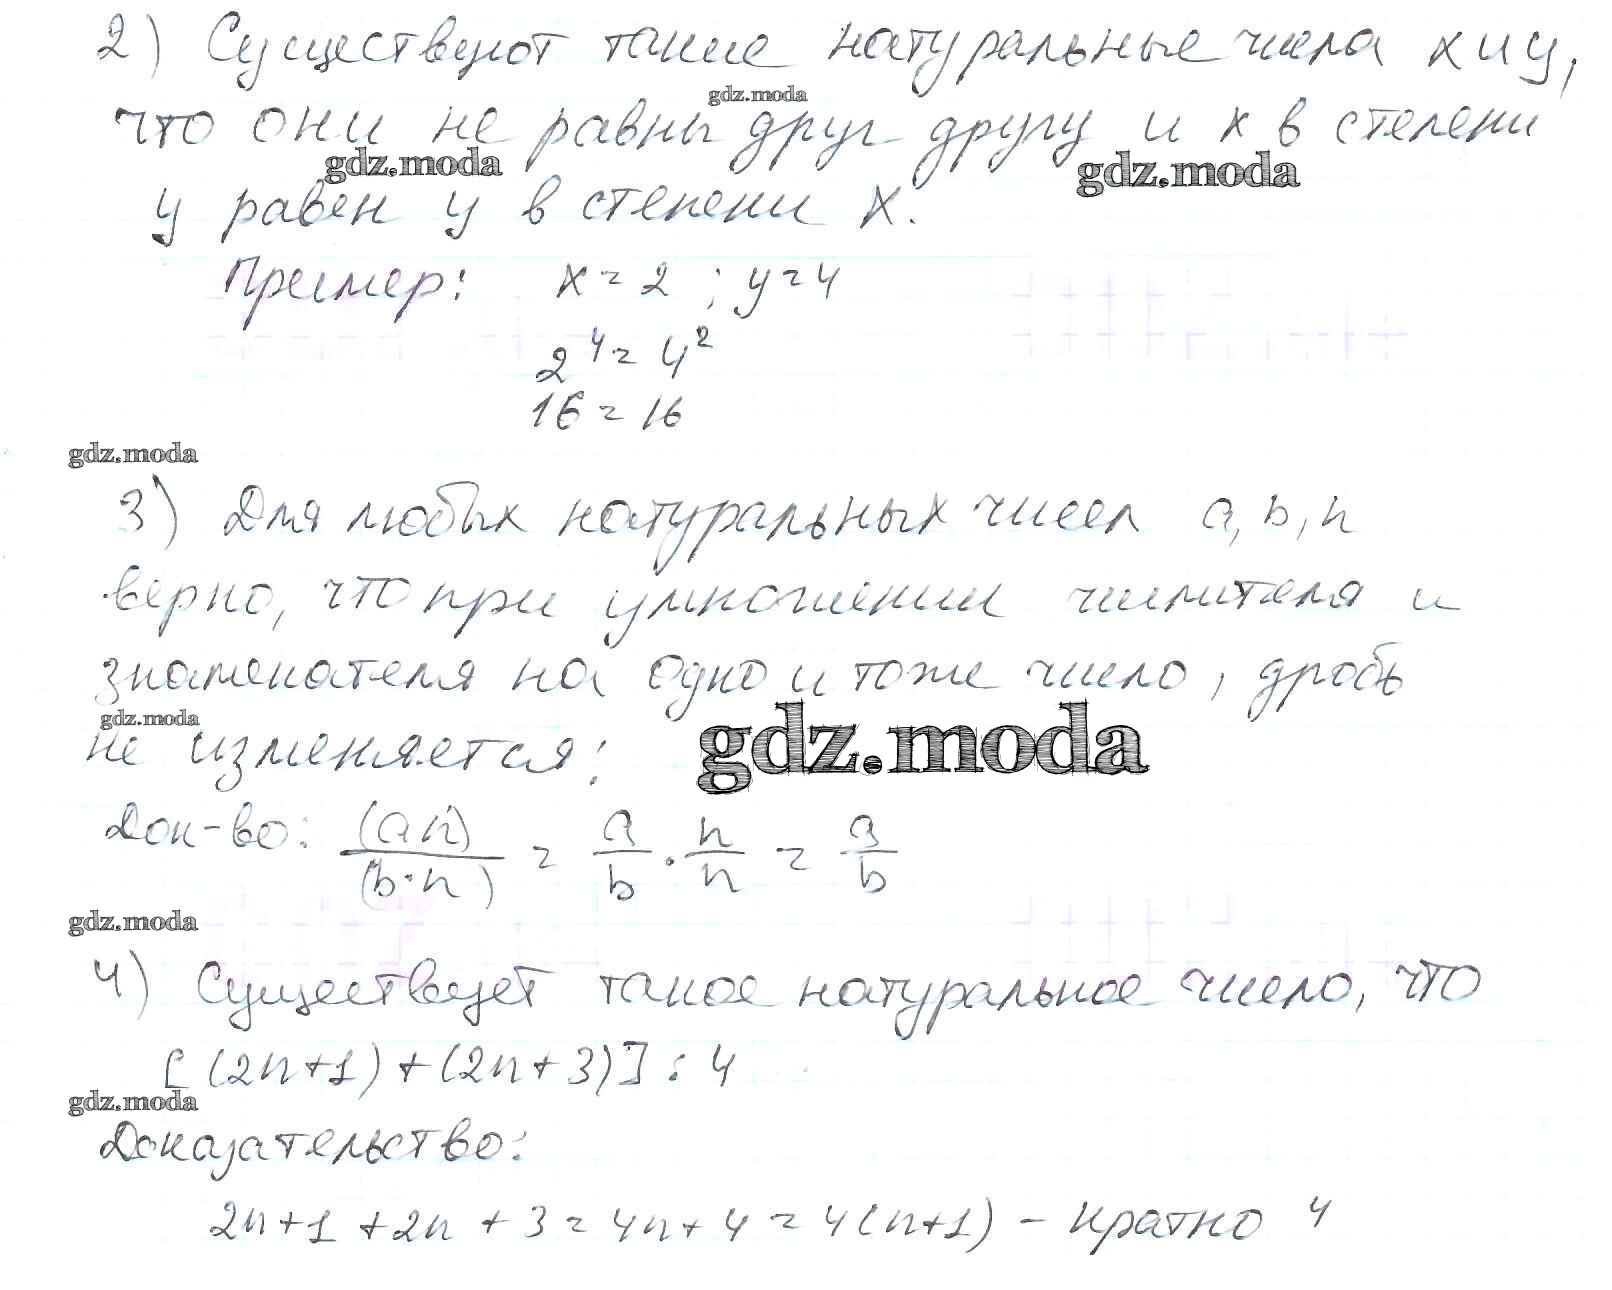 2) Существуют такие натуральные числа x и y,
gdz.moda
что они не равны друг другу и x в степени
gdz.moda gdz.moda
y равен y в степени x.
Пример: x = 2 ; y = 4
2⁴ = 4²
16 = 16
gdz.moda
3) Для любых натуральных чисел a, b, n
верно, что при умножении числителя и
знаменателя на одно и тоже число, дробь
gdz.moda
не изменяется:
gdz.moda
Док-во: (an)/(b·n) = a/b · n/n = a/b
gdz.moda
4) Существует такое натуральное число, что
[(2n+1)+(2n+3)] : 4
gdz.moda
Доказательство:
2n+1+2n+3 = 4n+4 = 4(n+1) - кратно 4